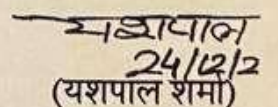 यशपाल
24/12/2
(यशपाल शर्मा)